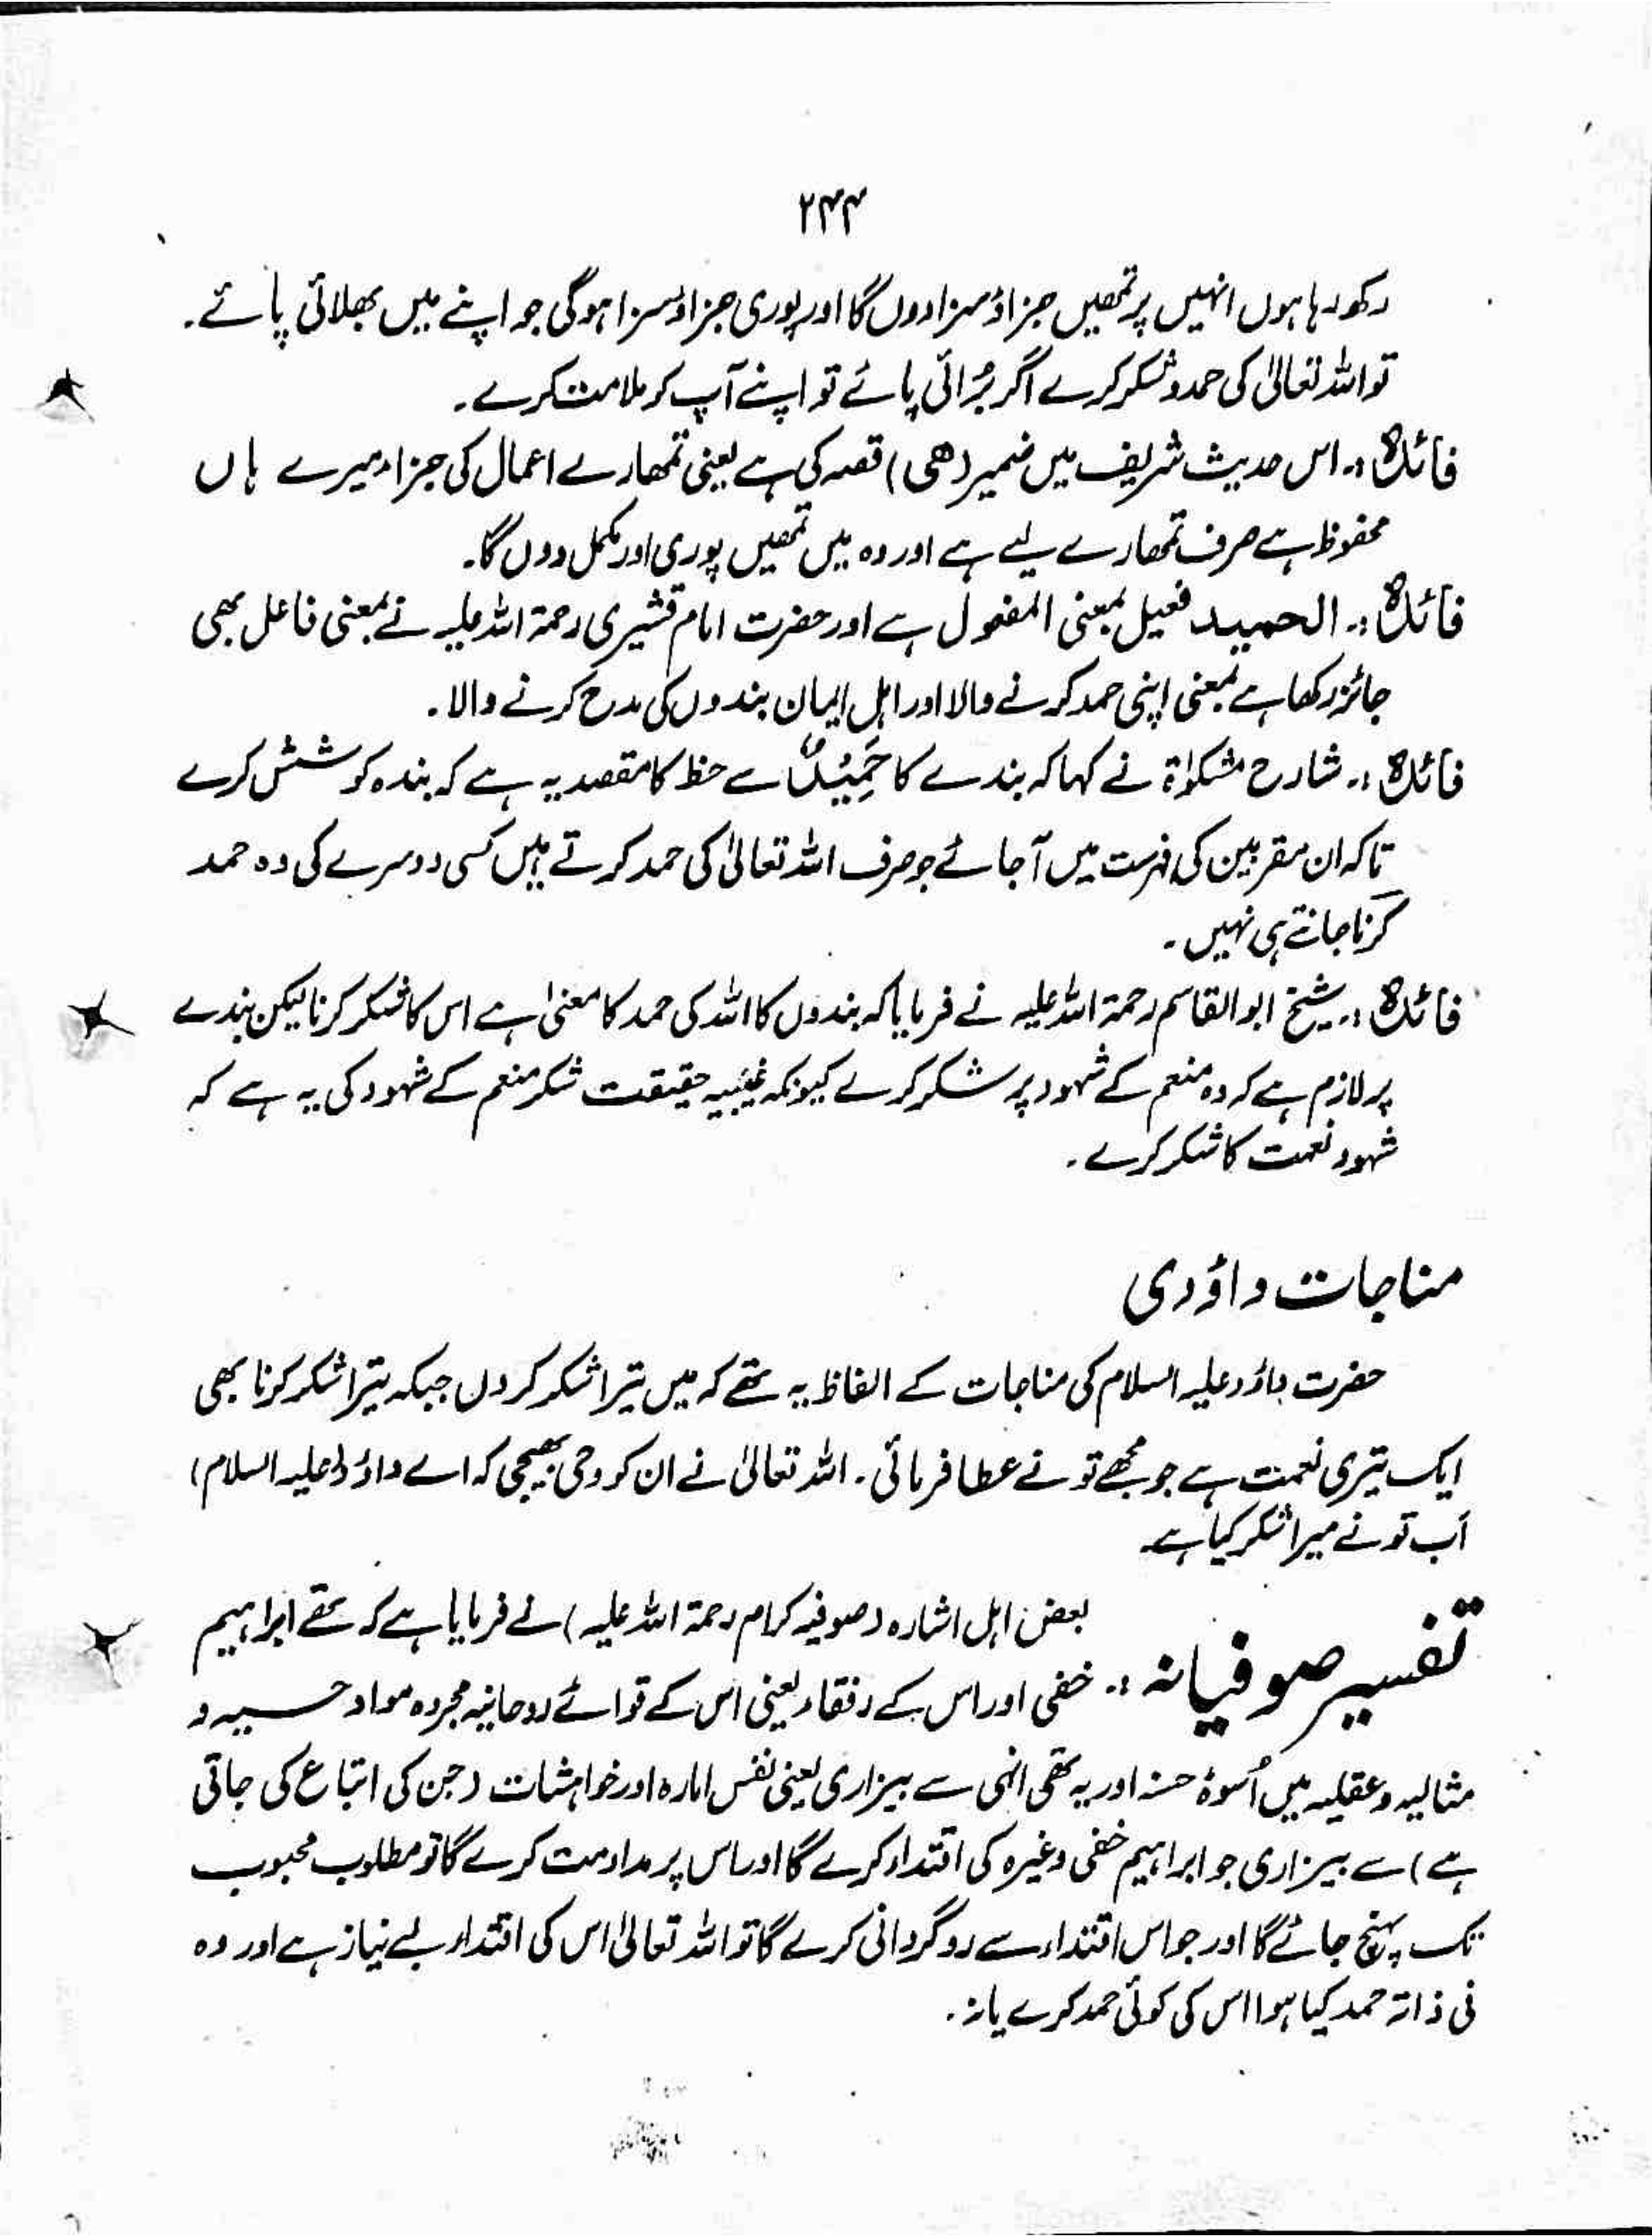 ۲۴۴
رکھ رہا ہوں انہیں پر تمھیں جزاؤ سزا دوں گا اور پوری جزاؤ سزا ہوگی جو اپنے میں بھلائی پائے۔
تو اللہ تعالیٰ کی حمد و شکر کرے اگر بُرائی پائے تو اپنے آپ کو ملامت کرے۔
فائدہ :۔ اس حدیث شریف میں ضمیر (ھی) قصہ کی ہے یعنی تمھارے اعمال کی جزاء میرے ہاں
محفوظ ہے صرف تمھارے لیے ہے اور وہ میں تمھیں پوری اور مکمل دوں گا۔
فائدہ :۔ الحمید فعیل بمعنی المفعول ہے اور حضرت امام قشیری رحمۃ اللہ علیہ نے بمعنی فاعل بھی
جائز رکھا ہے بمعنی اپنی حمد کرنے والا اور اہل ایمان بندوں کی مدح کرنے والا۔
فائدہ :۔ شارح مشکوٰۃ نے کہا کہ بندے کا حَمِیْدٌ سے حظ کا مقصد یہ ہے کہ بندہ کوشش کرے
تاکہ ان مقربین کی فہرست میں آ جائے جو صرف اللہ تعالیٰ کی حمد کرتے ہیں کسی دوسرے کی وہ حمد
کرنا جانتے ہی نہیں۔
فائدہ :۔ شیخ ابو القاسم رحمۃ اللہ علیہ نے فرمایا کہ بندوں کا اللہ کی حمد کا معنیٰ ہے اس کا شکر کرنا لیکن بندے
پر لازم ہے کہ وہ منعم کے شہود پر شکر کرے کیونکہ غیبیہ حقیقت شکر منعم کے شہود کی یہ ہے کہ
شہود نعمت کا شکر کرے۔
مناجات داؤدی
حضرت داؤد علیہ السلام کی مناجات کے الفاظ یہ تھے کہ میں تیرا شکر کروں جبکہ تیرا شکر کرنا بھی
ایک تیری نعمت ہے جو مجھے تو نے عطا فرمائی۔ اللہ تعالیٰ نے ان کو وحی بھیجی کہ اے داؤد (علیہ السلام)
اب تو نے میرا شکر کیا ہے۔
بعض اہل اشارہ (صوفیہ کرام رحمۃ اللہ علیہ) نے فرمایا ہے کہ تھے ابراہیم
تفسیر صوفیانہ :۔ خفی اور اس کے رفقاء یعنی اس کے قوائے روحانیہ مجردہ مواد حسیہ و
مثالیہ و عقلیہ میں اُسوۂ حسنہ اور یہ تھی انہی سے بیزاری یعنی نفس امارہ اور خواہشات (جن کی اتباع کی جاتی
ہے) سے بیزاری جو ابراہیم خفی وغیرہ کی اقتداء کرے گا اور اس پر مداومت کرے گا تو مطلوب محبوب
تک پہنچ جائے گا اور جو اس اقتداء سے روگردانی کرے گا تو اللہ تعالیٰ اس کی اقتداء بے نیاز ہے اور وہ
فی ذاتہ حمد کیا ہوا اس کی کوئی حمد کرے یا نہ۔